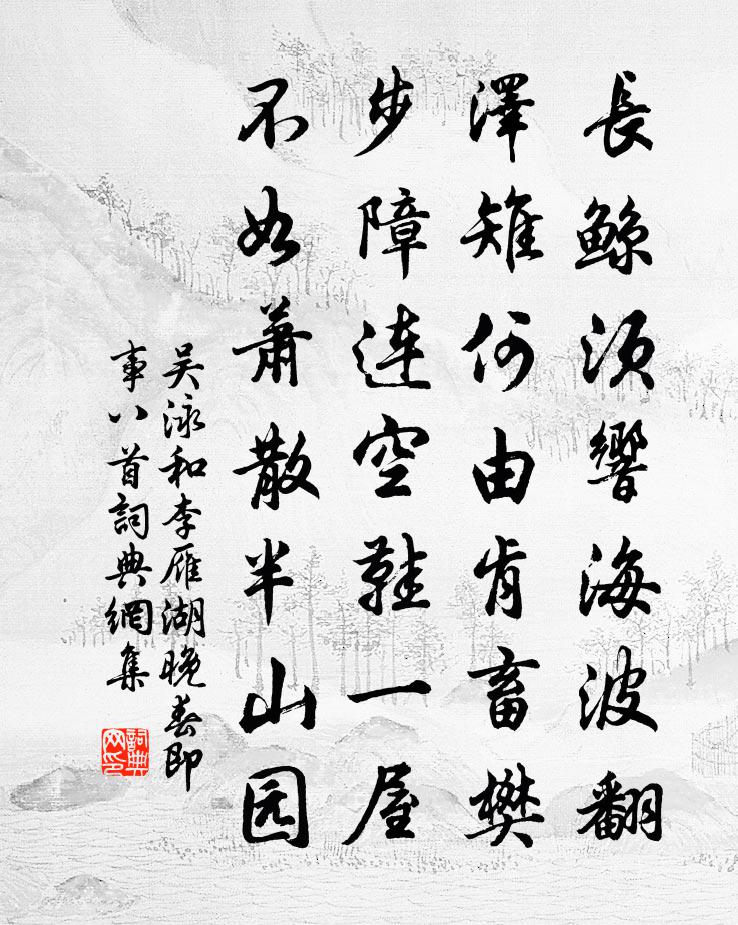 長鯨須響海波翻
澤雉何由肯畜樊
步障連空鞋一屋
不如蕭散半山园
吴泳和李雁湖晚春即
事八首詞典網集
詞典
网印